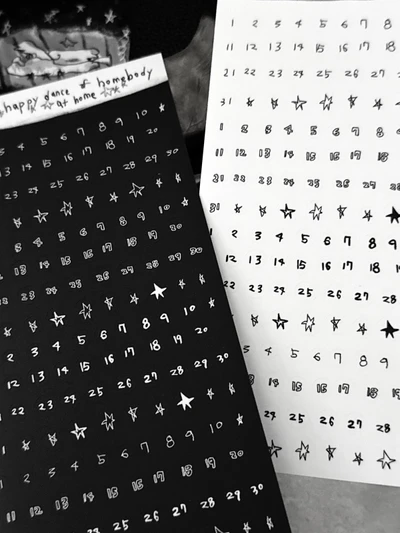 happy dance of homebody
at home
3 4 5 6 7 8 9 10
13 14 15 16 17 18 19 20
23 24 25 26 27 28 29 30
3 4 5 6 7 8 9 10
13 14 15 16 17 18 19 20
22 23 24 25 26 27 28 29 30
2 3 4 5 6 7 8 9 10
12 13 14 15 16 17 18 19 20
22 23 24 25 26 27 28 29 30
1 2 3 4 5 6 7 8 9 10
11 12 13 14 15 16 17 18 19 20
22 23 24 25 26 27 28 29 30
1 2 3 4 5 6 7 8
11 12 13 14 15 16 17 18
21 22 23 24 25 26 27
31
1 2 3 4 5 6 7 8
11 12 13 14 15 16 17 18
21 22 23 24 25 26 27 28
31
1 2 3 4 5 6 7 8 9
12 13 14 15 16 17 18
22 23 24 25 26 27 28
2 3 4 5 6 7 8 9
13 14 15 16 17 18
24 25 26 27 28